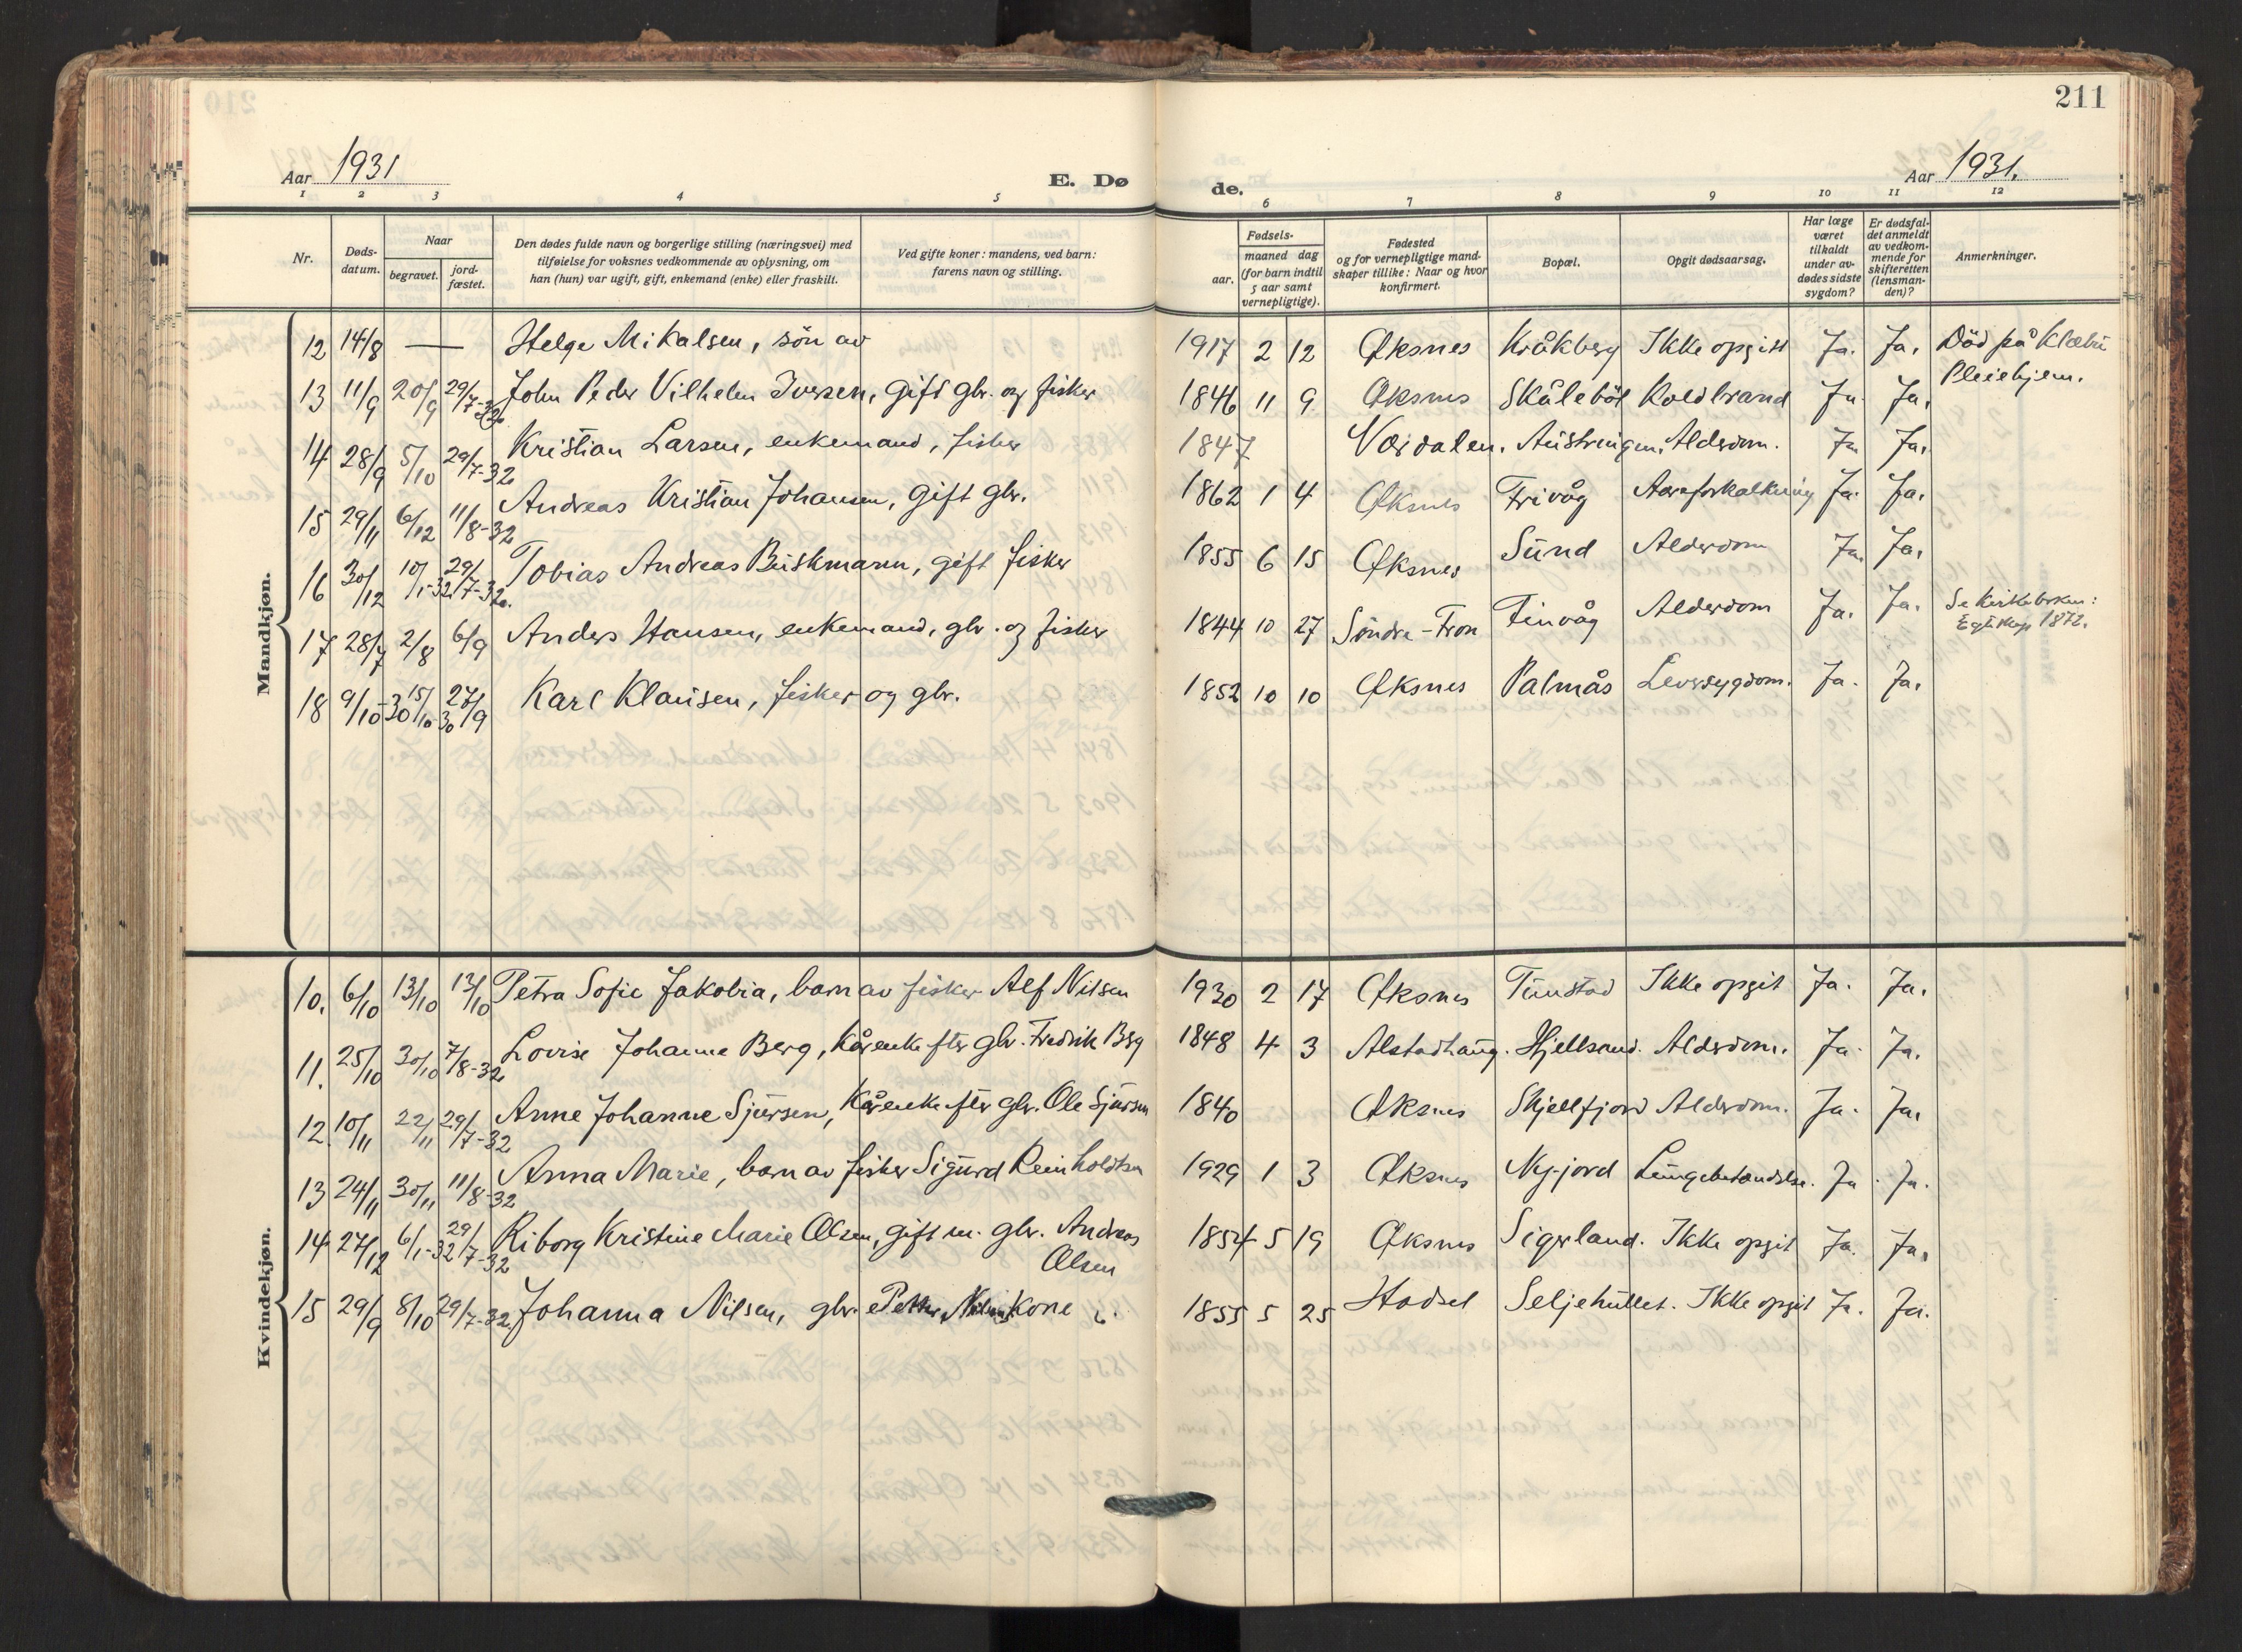 211
Aar 1931
E. Dø
de.
Aar 1931.
1 2 3 4 5 6 7 8 9 10 11 12
Nr.
Døds-datum.
Naar
begravet.
jord-fæstet.
Den dødes fulde navn og borgerlige stilling (næringsvei) med
tilføielse for voksnes vedkommende av oplysning, om
han (hun) var ugift, gift, enkemand (enke) eller fraskilt.
Ved gifte koner: mandens, ved barn:
farens navn og stilling.
Fødsels-
aar.
maaned dag
(for barn indtil
5 aar samt
vernepligtige).
Fødested
og for vernepligtige mand-
skaper tillike: Naar og hvor
konfirmert.
Bopæl.
Opgit dødsaarsag.
Har læge
været
tilkaldt
under av-
dødes sidste
sygdom?
Er dødsfal-
det anmeldt
av vedkom-
mende for
skifteretten
(lensman-
den)?
Anmerkninger.
Mandkjøn.
12 14/8 — Helge Mikalsen, sön av 1917 2 12 Øksnes Kråkberg Ikke opgitt Ja. Ja. Död på Klæbu
Pleiehjem.
13 11/9 20/9 29/7-32 John Peder Vilhelm Iversen, gift gbr. og fisker 1846 11 9 Øksnes Skåleböl Koldbrand Ja. Ja.
14 28/9 5/10 29/7-32 Kristian Larsen, enkemand, fisker 1847 Værdalen. Austringen. Alderdom. Ja. Ja.
15 29/11 6/12 11/8-32 Andreas Kristian Johansen, gift gbr. 1862 1 4 Øksnes Frivåg Aareforkalkning Ja. Ja.
16 30/12 10/1-32 29/7-32 Tobias Andreas Buskmann, gift fisker 1855 6 15 Øksnes Sund Alderdom Ja. Ja.
17 28/7 2/8 6/9 Anders Hansen, enkemand, gbr. og fisker 1844 10 27 Söndre-Fron Finvåg Alderdom Ja. Ja. Se kirkeboken:
1872.
18 9/10-30 15/10-30 27/9 Karl Klausen, fisker og gbr. 1852 10 10 Øksnes Palmås Leversygdom. Ja. Ja.
Kvindekjøn.
10. 6/10 13/10 13/10 Petra Sofie Jakobia, barn av fisker Alf Nilsen 1930 2 17 Øksnes Tunstad Ikke opgit Ja. Ja.
11. 25/10 30/10 7/8-32 Lovise Johanne Berg, kårenke efter gbr. Fredrik Berg 1848 4 3 Alstadhaug. Hjellsand. Alderdom. Ja. Ja.
12. 10/11 22/11 29/7-32 Anne Johanne Sjursen, kårenke efter gbr. Ole Sjursen 1840 Øksnes Skjellfjord Alderdom. Ja. Ja.
13 24/11 30/11 11/8-32 Anna Marie, barn av fisker Sigurd Reinholdtsen 1929 1 3 Øksnes Ny-jord Lungebetændelse. Ja. Ja.
14 27/12 6/1-32 29/7-32 Riborg Kristine Marie Olsen, gift m. gbr. Andreas
Olsen 1854 5 19 Øksnes Sigerland. Ikke opgit Ja. Ja.
15 29/9 8/10 29/7-32 Johanna Nilsen, gbr. Petter Nilsens Kone 1855 5 25 Hadsel Seljehullet. Ikke opgit Ja. Ja.